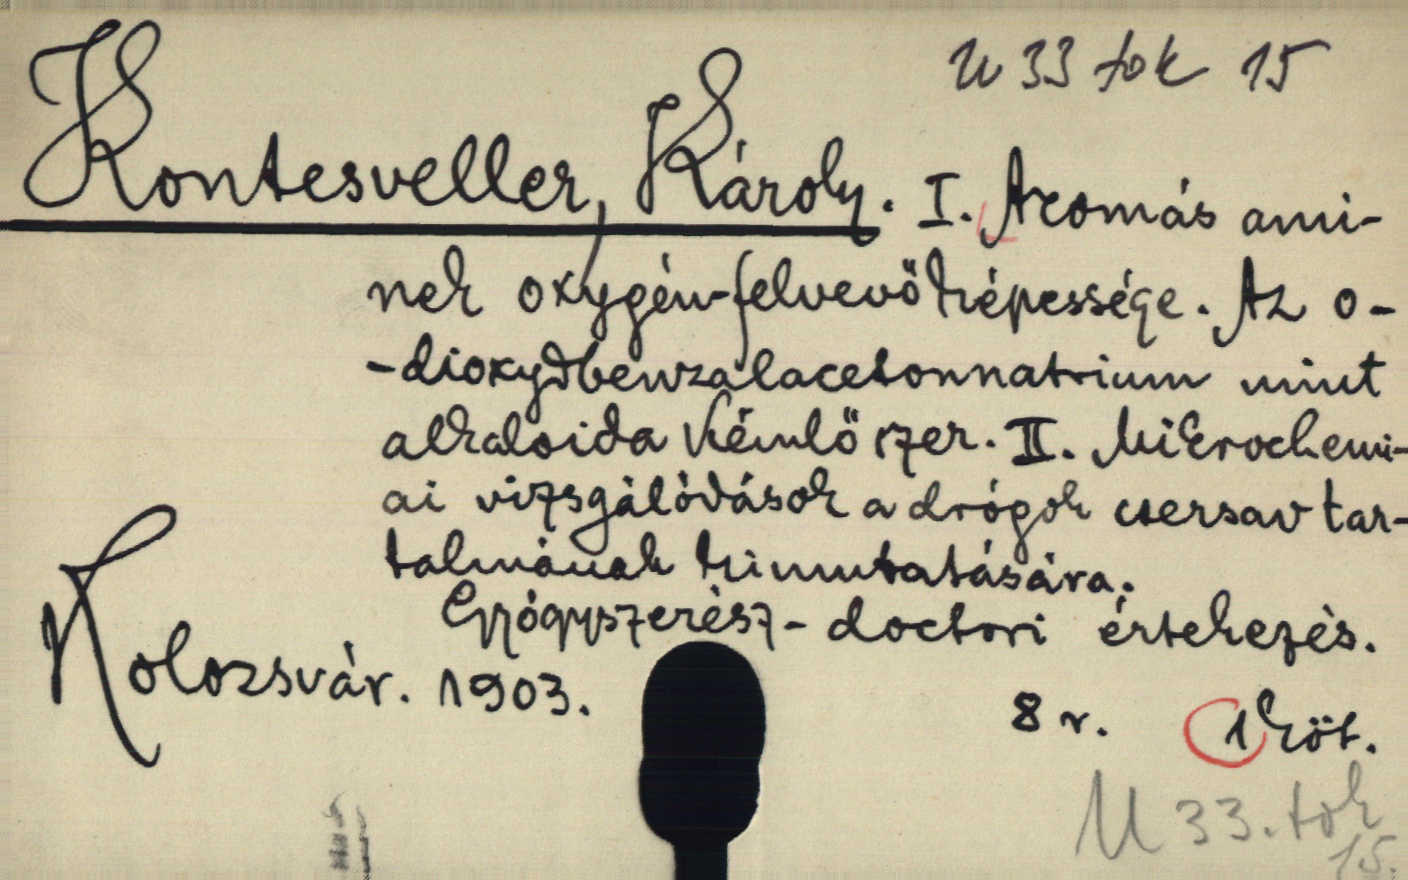 U 33 tok 15
Kontesveller, Károly. I. Aromás ami-
nek oxygén-felvevő képessége. Az o-
-dioxydbenzalacetonnatrium mint
alkaloida kémlőszer. II. Mikrochemi-
ai vizsgálódások a drógok csersav tar-
talmának kimutatására.
Gyógyszerész-doctori értekezés.
Kolozsvár. 1903.
8 r. 1 köt.
U 33. tok
15.